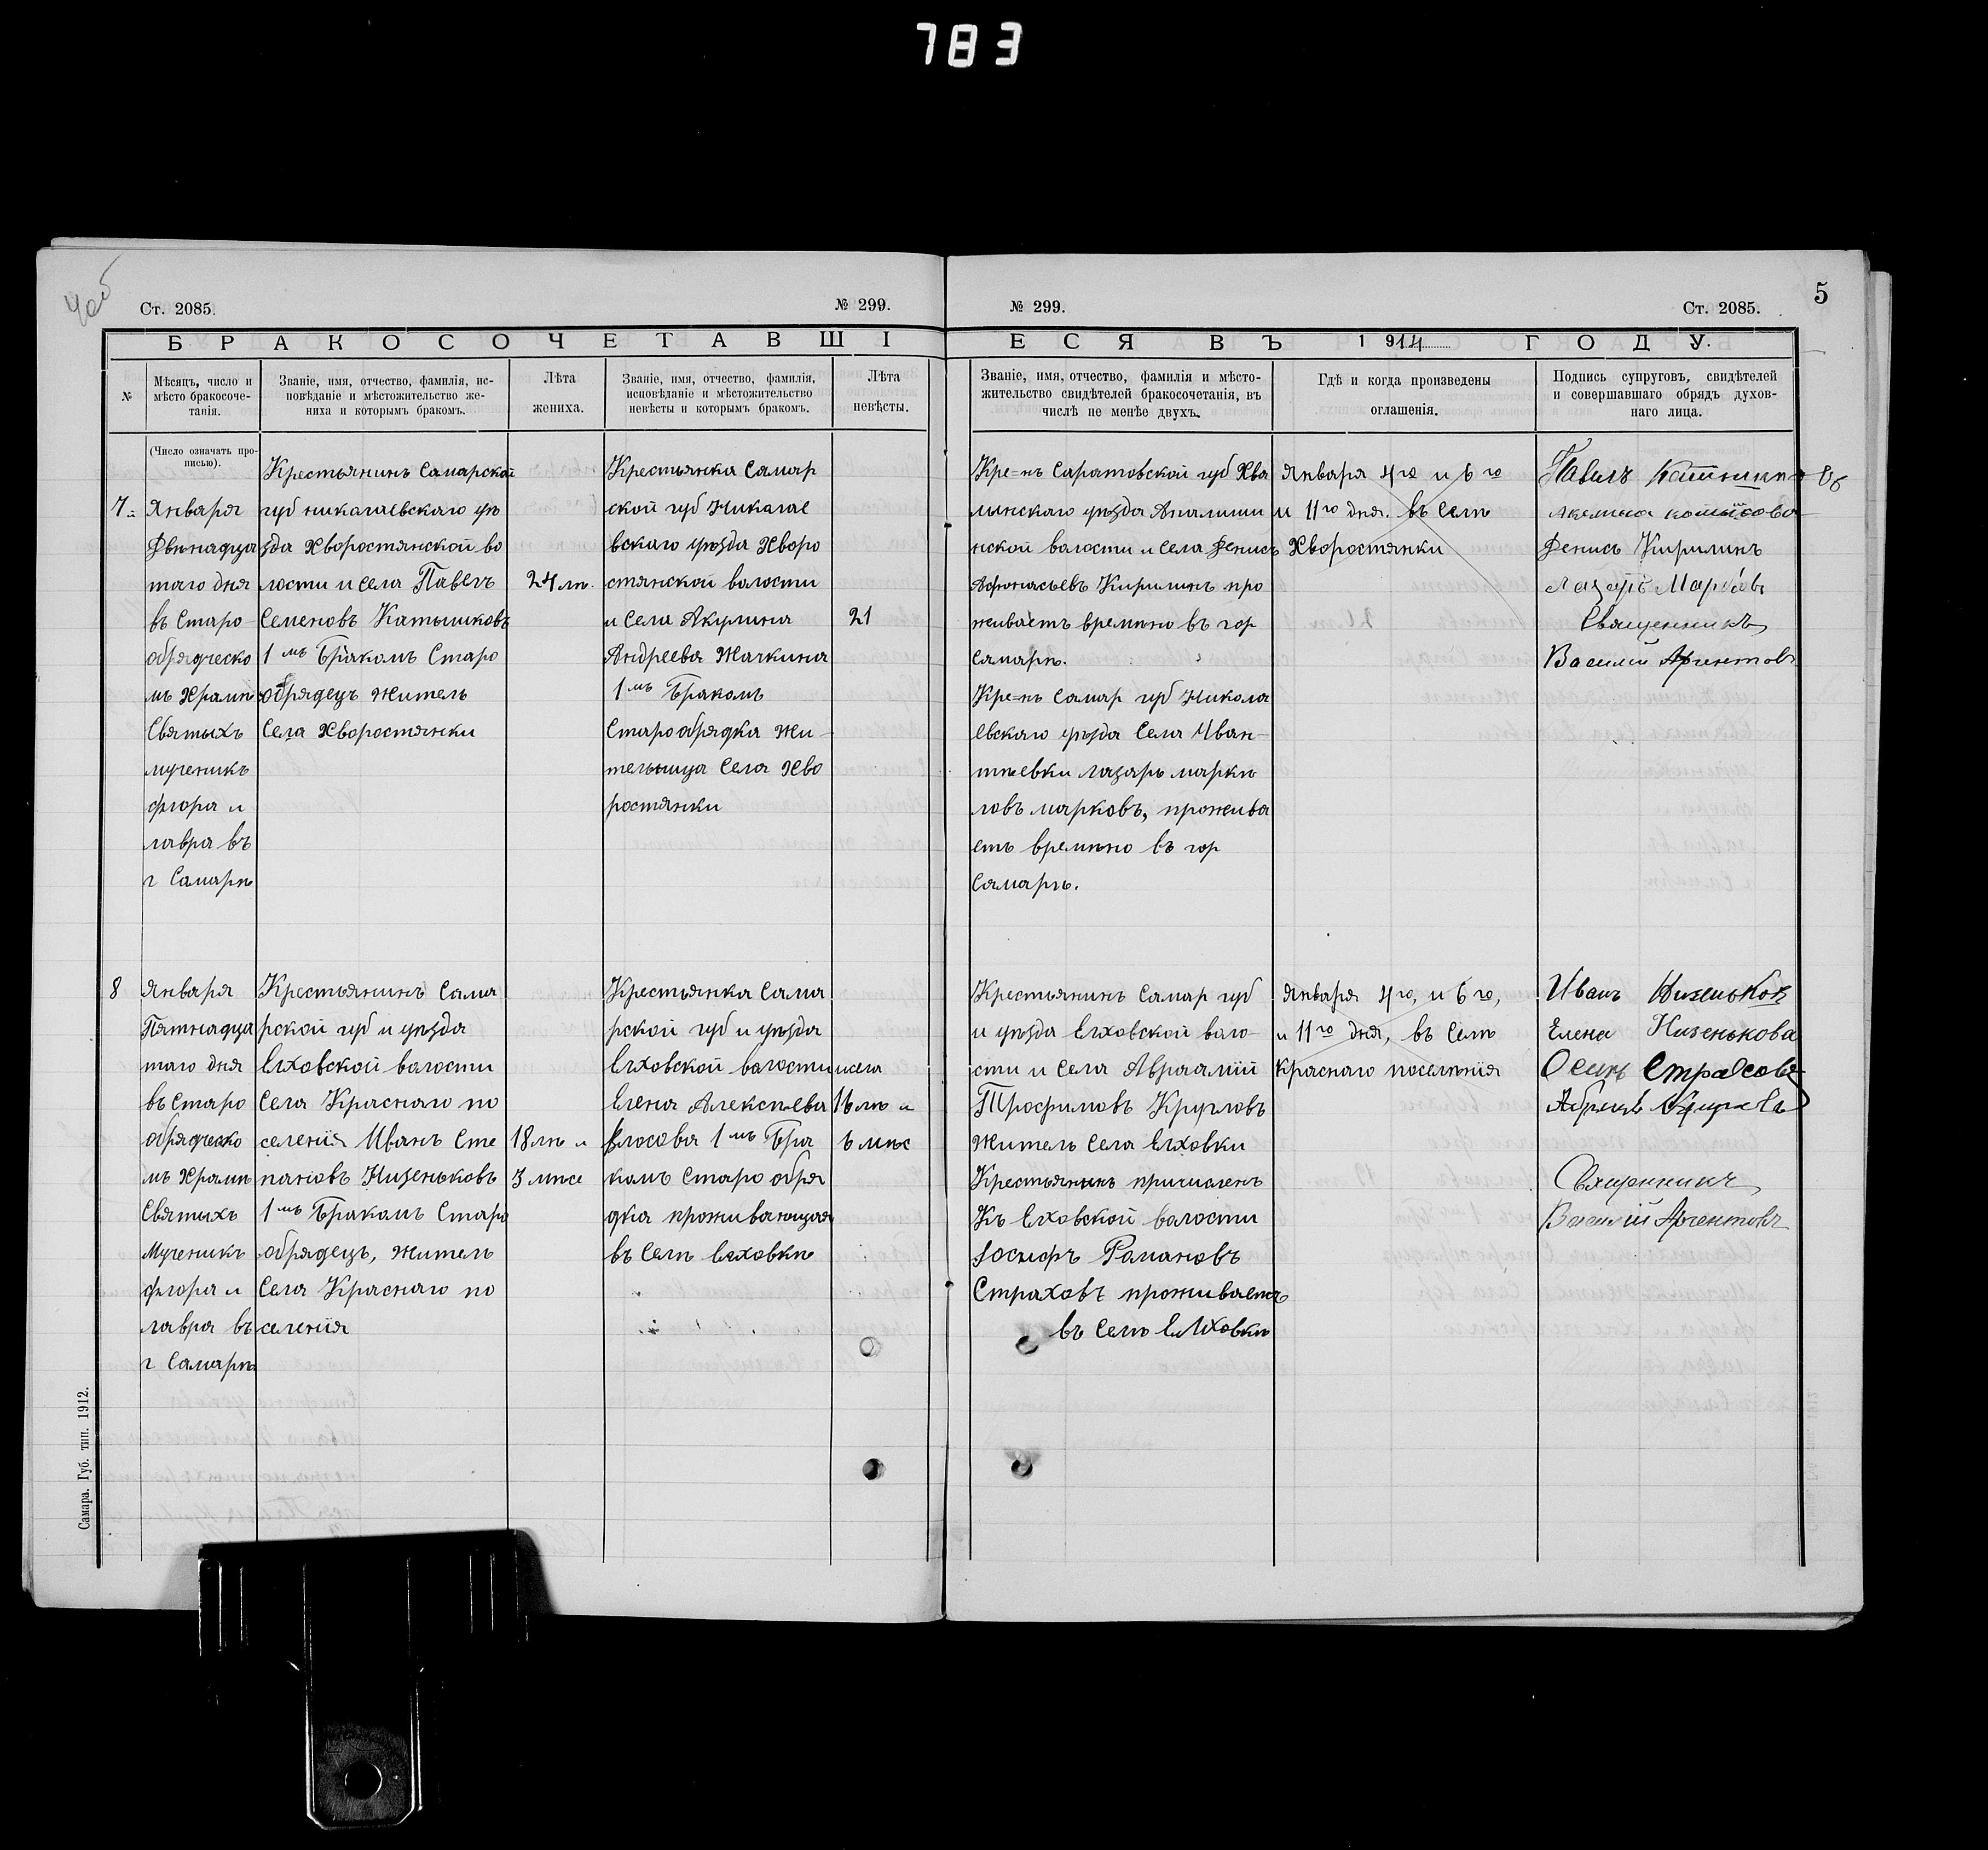 783
Ст. 2085.
№ 299.
№ 299.
Ст. 2085.
5
БРАКОСОЧЕТАВШІ
ЕСЯ ВЪ 1914 ГОДУ.
№
Мѣсяцъ, число и
мѣсто бракосоче-
танія.
Званіе, имя, отчество, фамилія, ис-
повѣданіе и мѣстожительство же-
ниха и которымъ бракомъ.
Лѣта
жениха.
Званіе, имя, отчество, фамилія,
исповѣданіе и мѣстожительство
невѣсты и которымъ бракомъ.
Лѣта
невѣсты.
Званіе, имя, отчество, фамилія и мѣсто-
жительство свидѣтелей бракосочетанія, въ
числѣ не менѣе двухъ.
Гдѣ и когда произведены
оглашенія.
Подпись супруговъ, свидѣтелей
и совершавшаго обрядъ духов-
наго лица.
(Число означать про-
писью).
7
Января
Двенадца
таго дня
въ Старо
обрядческо
мъ Храмѣ
Святыхъ
мученикъ
флора и
лавра въ
г Самарѣ
Крестьянинъ Самарской
губ николаевскаго уѣ
зда Хворостянской во
лости и села Павелъ
Семеновъ Катышковъ
1 мъ Бракомъ Старо
обрядецъ Житель
Села Хворостянки
24 лѣ
Крестьянка Самар
ской губ Николае
вскаго уѣзда Хворо
стянской волости
и Села Акулина
Андреева Жачкина
1 мъ Бракомъ
Старообрядка Жи-
тельница Села Хво
ростянки
21
Кре=нъ Саратовской губ Хва
лынскаго уѣзда Апалиши
нской волости и села Денисъ
Афонасьевъ Кирилинъ про
живаетъ времѣно въ гор
Самарѣ.
Кре=нъ Самар губ Никола
евскаго уѣзда Села Иван-
тѣевки лазарь маркѣ
ловъ марковъ, прожива
етъ времѣно въ гор
Самарѣ.
Января 4го и 6го
и 11го дня. въ Селѣ
Хворостянки
Павелъ
Денисъ Кирилинъ
Лазарь Марковъ
Священникъ
Василий Аргентовъ
8
Января
Пятнадца
таго дня
въ Старо
обрядческо
мъ Храмѣ
Святыхъ
Мученикъ
флора и
лавра въ
г Самарѣ
Крестьянинъ Сама
рской губ и уѣзда
Елховской волости
Села Краснаго по
селенія Иванъ Сте
пановъ Низеньковъ
1 мъ Бракомъ Старо
обрядецъ, Житель
Села Краснаго по
селенія
18 лѣ и
3 мѣсе
Крестьянка Сама
рской губ и уѣзда
Елховской волости и села
Елена Алексѣева
Власова 1 мъ Бра
комъ Старо обря
дка проживающая
въ Селѣ Елховкѣ
16 лѣ и
6 мѣс
Крестьянинъ Самар губ
и уѣзда Елховской воло-
сти и Села Авраамій
Трофимовъ Кругловъ
Житель Села Елховки
Крестьянинъ причисленъ
Къ Елховской волости
Іосифъ Романовъ
Страховъ проживаетъ
въ Селѣ Елховкѣ
Января 4го, и 6го,
и 11го дня, въ Селѣ
Краснаго поселѣнія
Иванъ Низеньков
Елена Низенькова
Осипъ Страховъ
Священникъ
Василій Аргентовъ
Самара. Губ. тип. 1912.